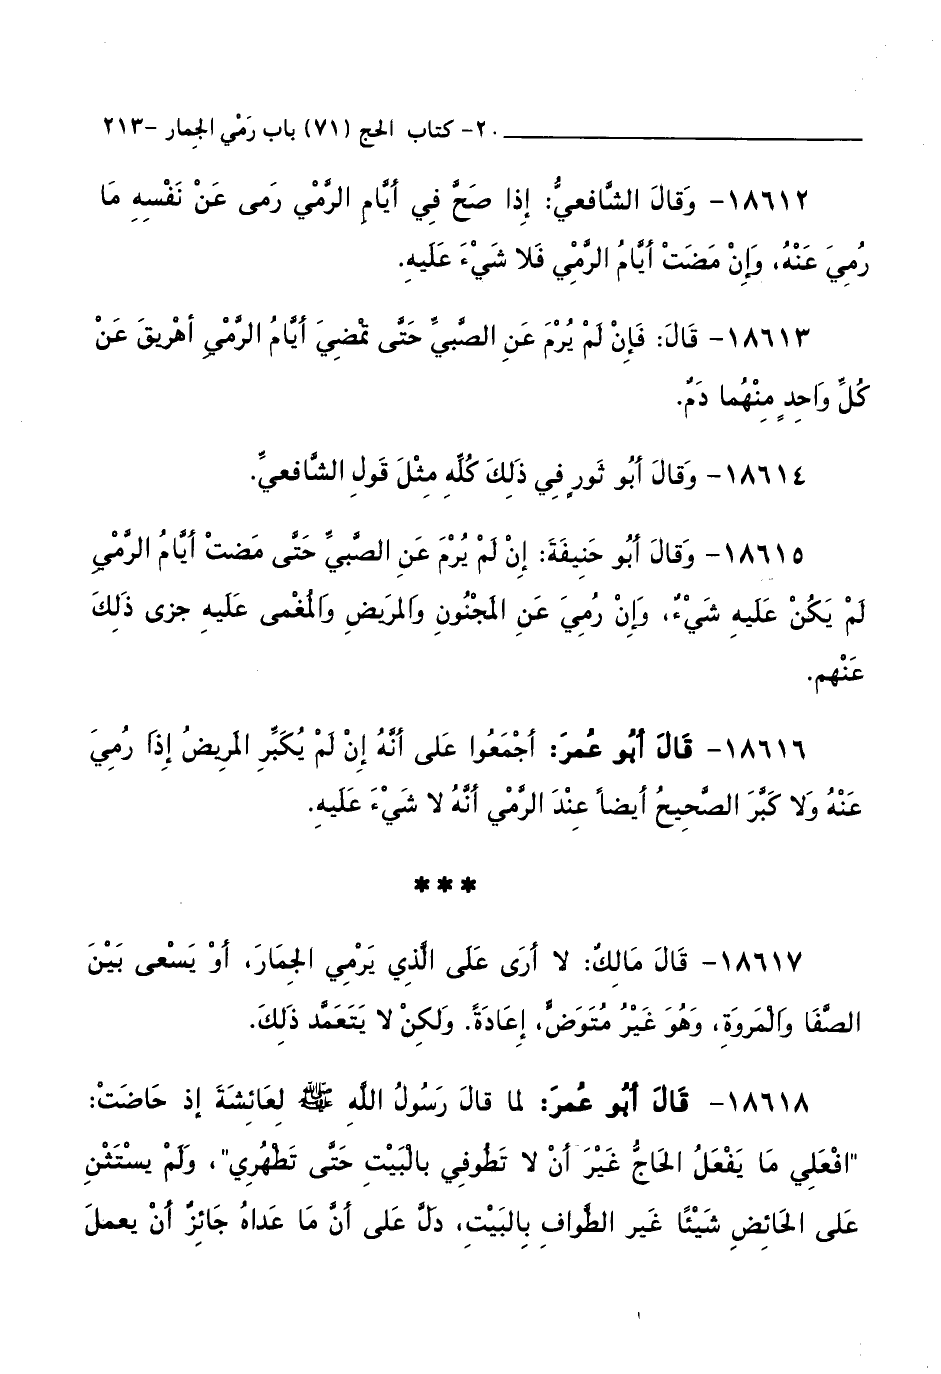 ٢٠- كتاب الحج (٧١) باب رَمْي الجِمار -٢١٣
١٨٦١٢- وَقالَ الشَّافعيُّ: إِذا صَحَّ فِي أَيَّامِ الرَّمْيِ رَمَى عَنْ نَفْسِهِ مَا
رُمِيَ عَنْهُ، وَإِنْ مَضَتْ أَيَّامُ الرَّمْيِ فَلا شَيْءَ عَلَيهِ.
١٨٦١٣- قَالَ: فَإِنْ لَمْ يُرْمَ عَنِ الصَّبيِّ حَتَّى تَمْضِيَ أَيَّامُ الرَّمْيِ أهْرِيقَ عَنْ
كُلِّ وَاحِدٍ مِنْهُما دَمٌ.
١٨٦١٤- وَقَالَ أَبُو ثَورٍ فِي ذَلِكَ كُلِّهِ مِثْلَ قَولِ الشَّافعيِّ.
١٨٦١٥- وَقالَ أَبُو حَنِيفَةَ: إِنْ لَمْ يُرْمَ عَنِ الصَّبيِّ حَتَّى مَضتْ أَيَّامُ الرَّمْيِ
لَمْ يَكُنْ عَلَيهِ شَيْءٌ، وَإِنْ رُمِيَ عَنِ المَجْنُونِ وَالمَرِيضِ وَالمُغْمى عَلَيهِ جزى ذَلِكَ
عَنْهم.
١٨٦١٦- قَالَ أَبُو عُمرَ: أَجْمَعُوا عَلى أَنَّهُ إِنْ لَمْ يُكَبِّرِ المَرِيضُ إِذَا رُمِيَ
عَنْهُ وَلا كَبَّرَ الصَّحِيحُ أيضاً عِنْدَ الرَّمْيِ أَنَّهُ لا شَيْءَ عَلَيهِ.
***
١٨٦١٧- قَالَ مَالِكٌ: لا أَرَى عَلَى الَّذِي يَرْمِي الجِمَارَ، أَوْ يَسْعى بَيْنَ
الصَّفَا وَالْمَروَةِ، وَهُوَ غَيْرُ مُتَوَضٍّ، إِعَادَةً. وَلكِنْ لا يَتَعَمَّد ذلِكَ.
١٨٦١٨- قَالَ أَبُو عُمرَ: لما قالَ رَسُولُ اللَّهِ ﷺ لِعَائِشَةَ إِذ حَاضَتْ:
"افْعَلِي مَا يَفْعَلُ الحَاجُّ غَيْرَ أَنْ لا تَطُوفي بِالْبَيْتِ حَتَّى تَطْهُرِي"، وَلَمْ يستَثْنِ
عَلى الحَائِضِ شَيْئًا غَير الطَّوافِ بِالبَيْتِ، دَلَّ عَلى أَنَّ مَا عَداهُ جَائِزٌ أَنْ يعملَ